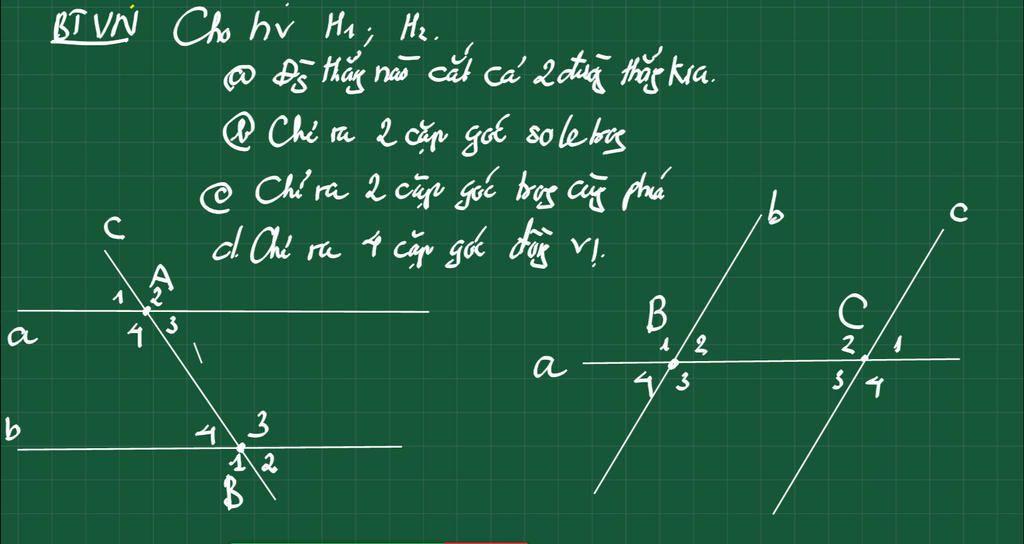 BTVN Cho hv H1; H2.
a Đg thẳng nào cắt cả 2 đường thẳng kia.
b Chỉ ra 2 cặp góc so le trog
c Chỉ ra 2 cặp góc trog cùg phía
d. Chỉ ra 4 cặp góc đồng vị.
c
b
c
A
1 2
4 3
a
B
1 2
4 3
C
2 1
3 4
a
b
4 3
1 2
B